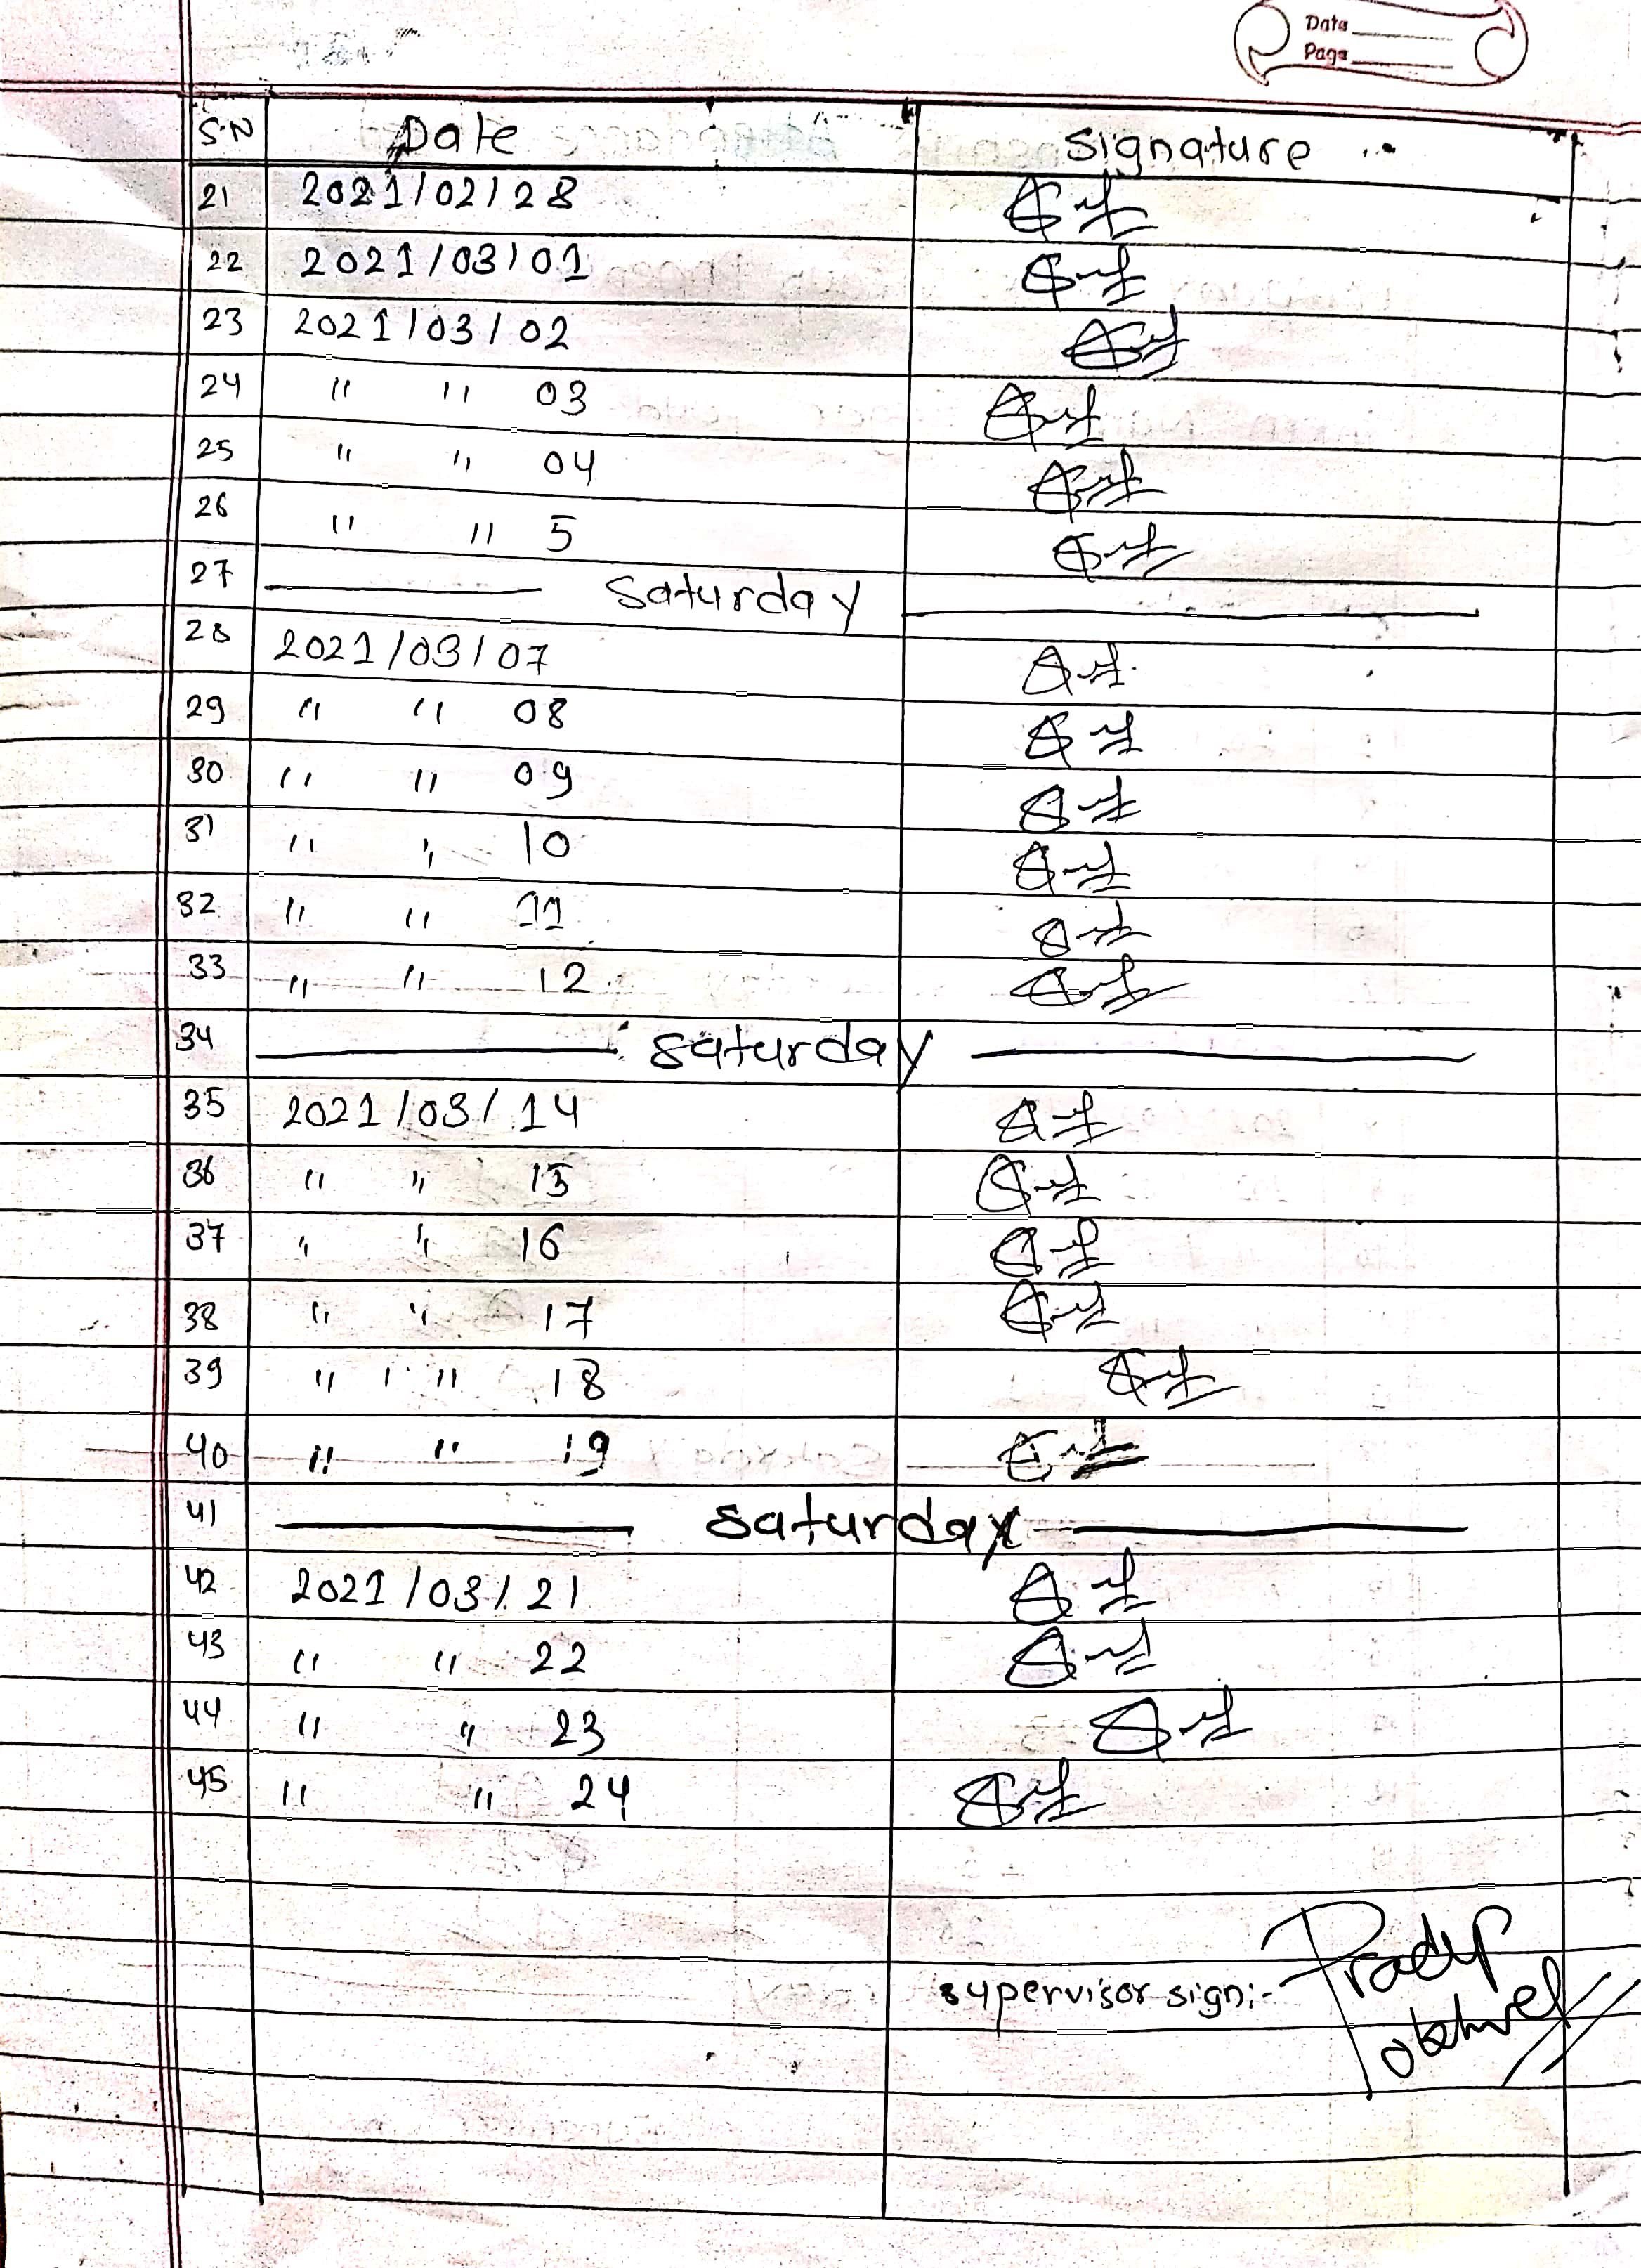 Date
Page
S.N Date Signature
21 2021/02/28
22 2021/03/01
23 2021/03/02
24 " " 03
25 " " 04
26 " " 5
27 Saturday
28 2021/03/07
29 " " 08
30 " " 09
31 " " 10
32 " " 11
33 " " 12
34 Saturday
35 2021/03/14
36 " " 15
37 " " 16
38 " " 17
39 " " 18
40 " " 19
41 Saturday
42 2021/03/21
43 " " 22
44 " " 23
45 " " 24
supervisor sign:- Pradip